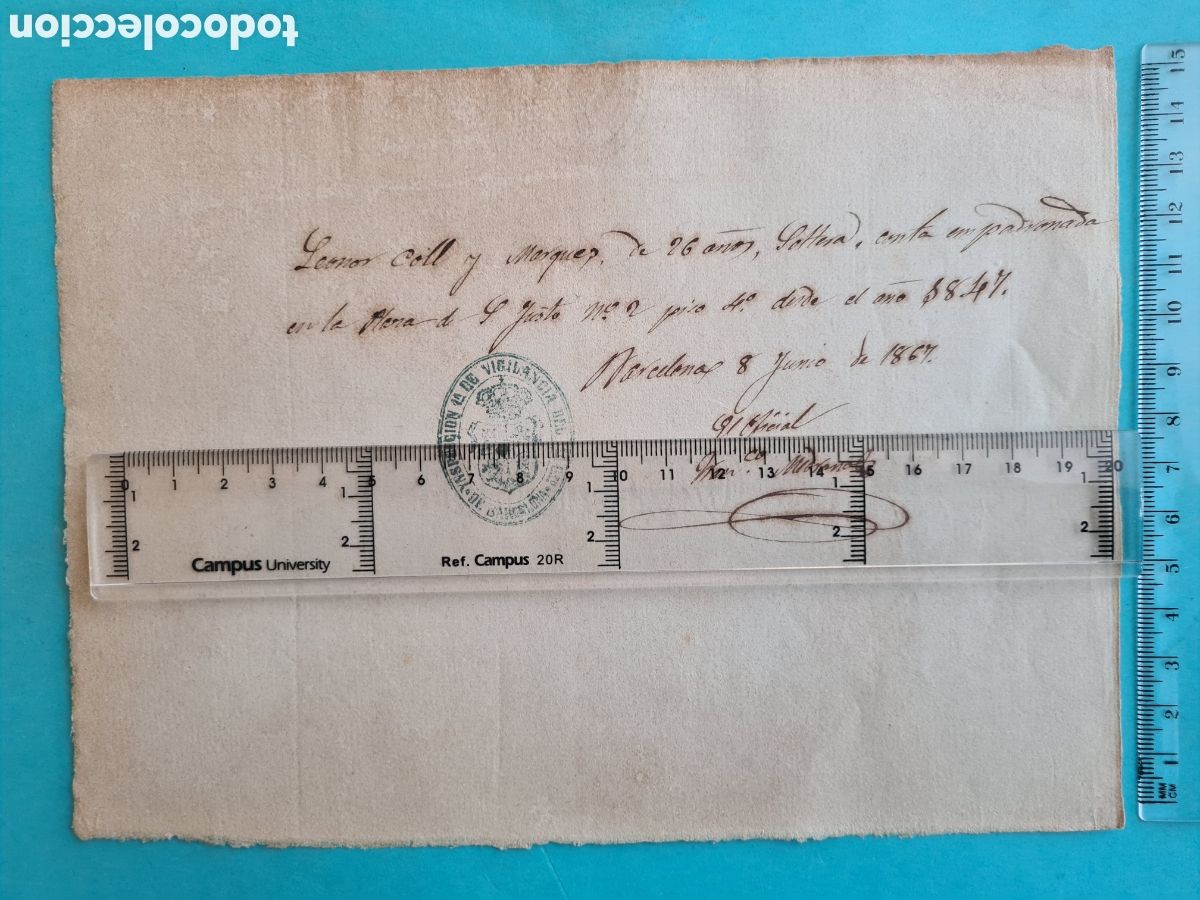 todocoleccion
Leonor Coll y Marques, de 26 años, Soltera, consta empadronada
en la Plaza de S. Justo Nº 2 piso 4º desde el año 1847.
Barcelona 8 Junio de 1867.
El Oficial
INSPECCION 1ª DE VIGILANCIA DEL
BARCELONA
0 1 2 3 4 5 6 7 8 9 10 11 12 13 14 15 16 17 18 19 20
1 1 1 1 1
2 2 2 2 2
Campus University
Ref. Campus 20R
15
14
13
12
11
10
9
8
7
6
5
4
3
2
1
MM
CM